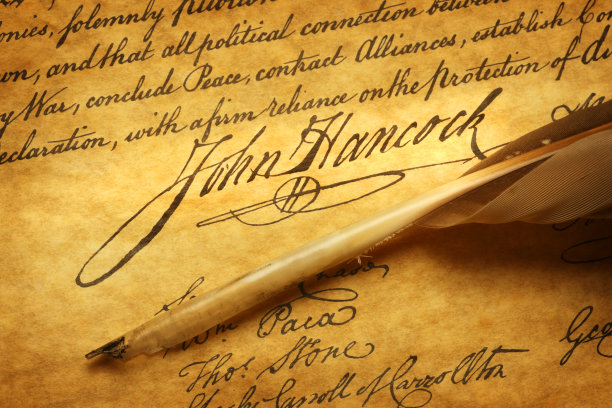 onies, solemnly publish
and that all political connection between
War, conclude Peace, contract Alliances, establish Com
eclaration, with a firm reliance on the Protection of di
John Hancock
Wm Paca
Thos. Stone
Charles Carroll of Carrollton